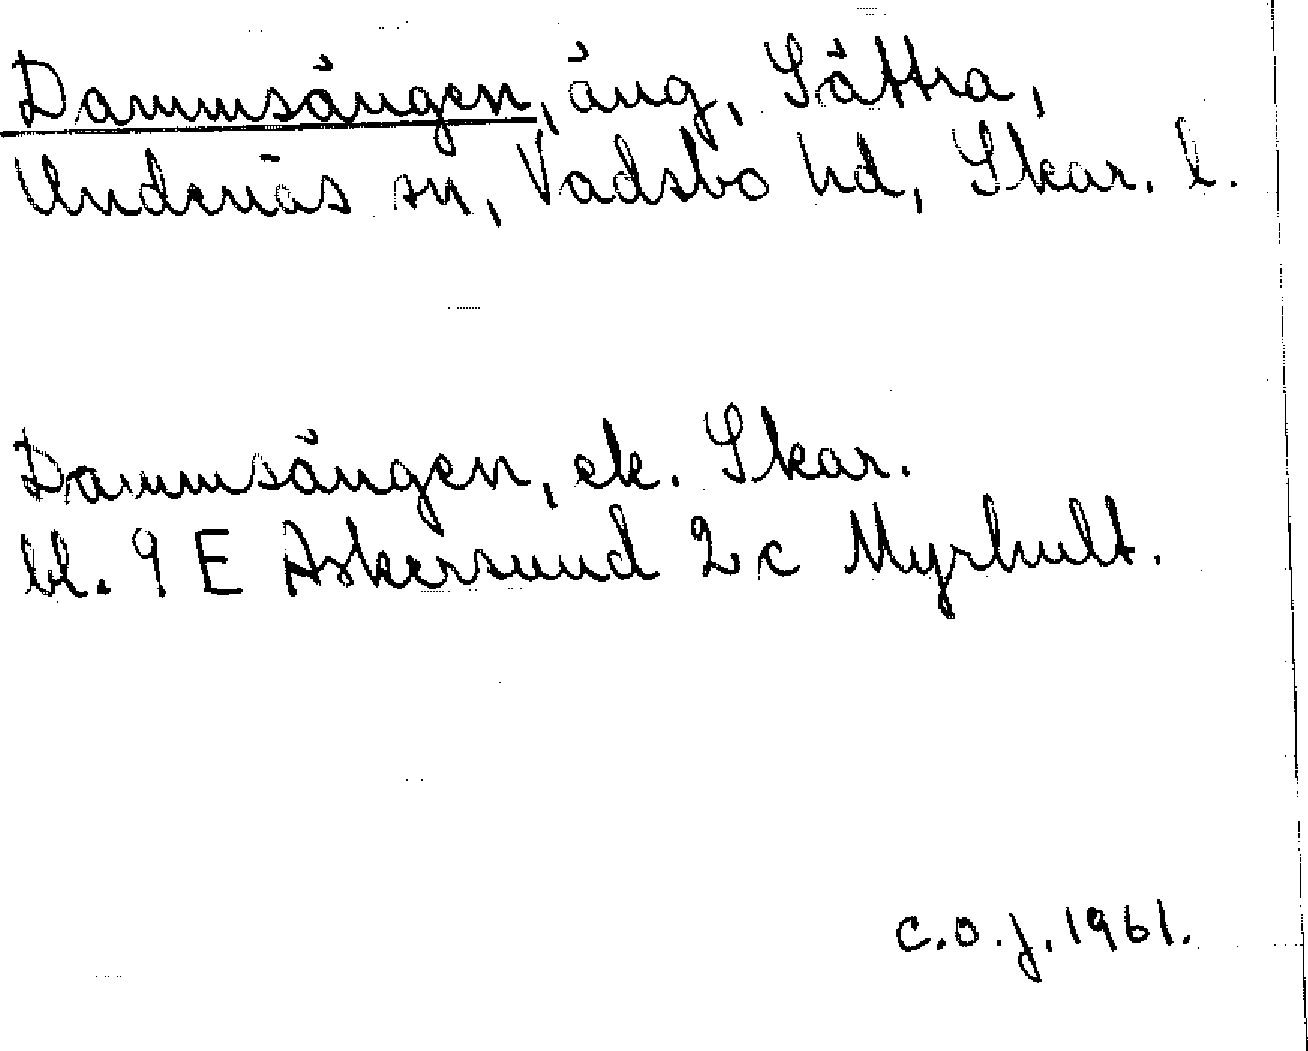 Dammsängen, äng, Sättra,
Undenäs sn, Vadsbo hd, Skar. l.
Dammsängen, ek. Skar.
bl. 9 E Askersund 2 c Myrhult.
C.O.J. 1961.